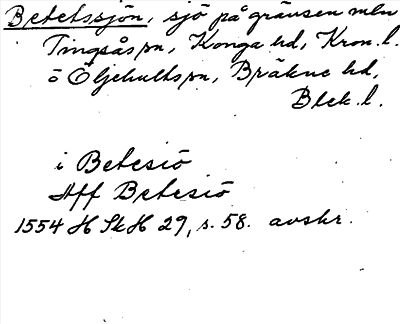 Betetssjön, sjö på gränsen mln
Tingsås sn, Konga hd, Kron. l.
o Öljehults sn, Bräkne hd,
Blek. l.
i Betesiö
Aff Betesiö
1554 H Sk H 29, s. 58. avskr.